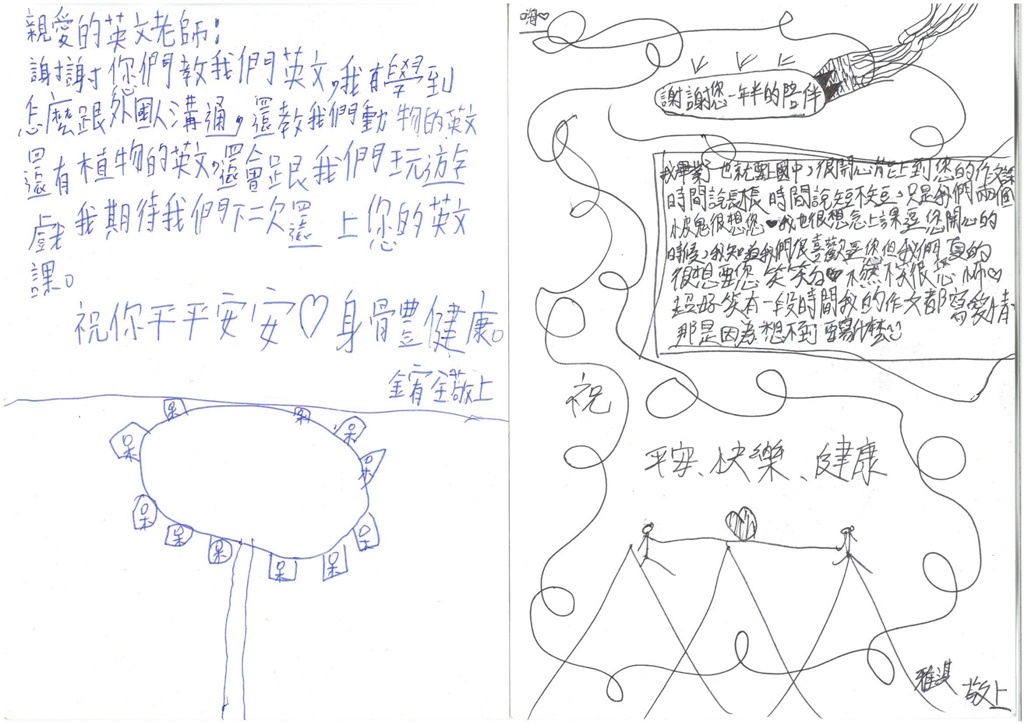 親愛的英文老師：
謝謝你們教我們英文，我有學到
怎麼跟外國人溝通，還教我們動物的英文
還有植物的英文，還會跟我們玩遊
戲我期待我們下次還上您的英文
課。
祝你平平安安♡身體健康。
敬上
呆 呆 呆 呆 呆 呆 呆 呆 呆 呆 呆
嗨♡
謝謝您一年半的陪伴
我畢業了也就要上國中，很開心能上到您的作文課
時間說長不長時間說短不短，只是我們兩個
很想您♥我也很想念上課逗您開心的
時候，我知道我們很喜歡逗你但我們真的
很想要您笑 不然
超好笑有一段時間我的作文都寫愛情
那是因為想不到要寫什麼
祝
平安、快樂、健康
雅淇 敬上